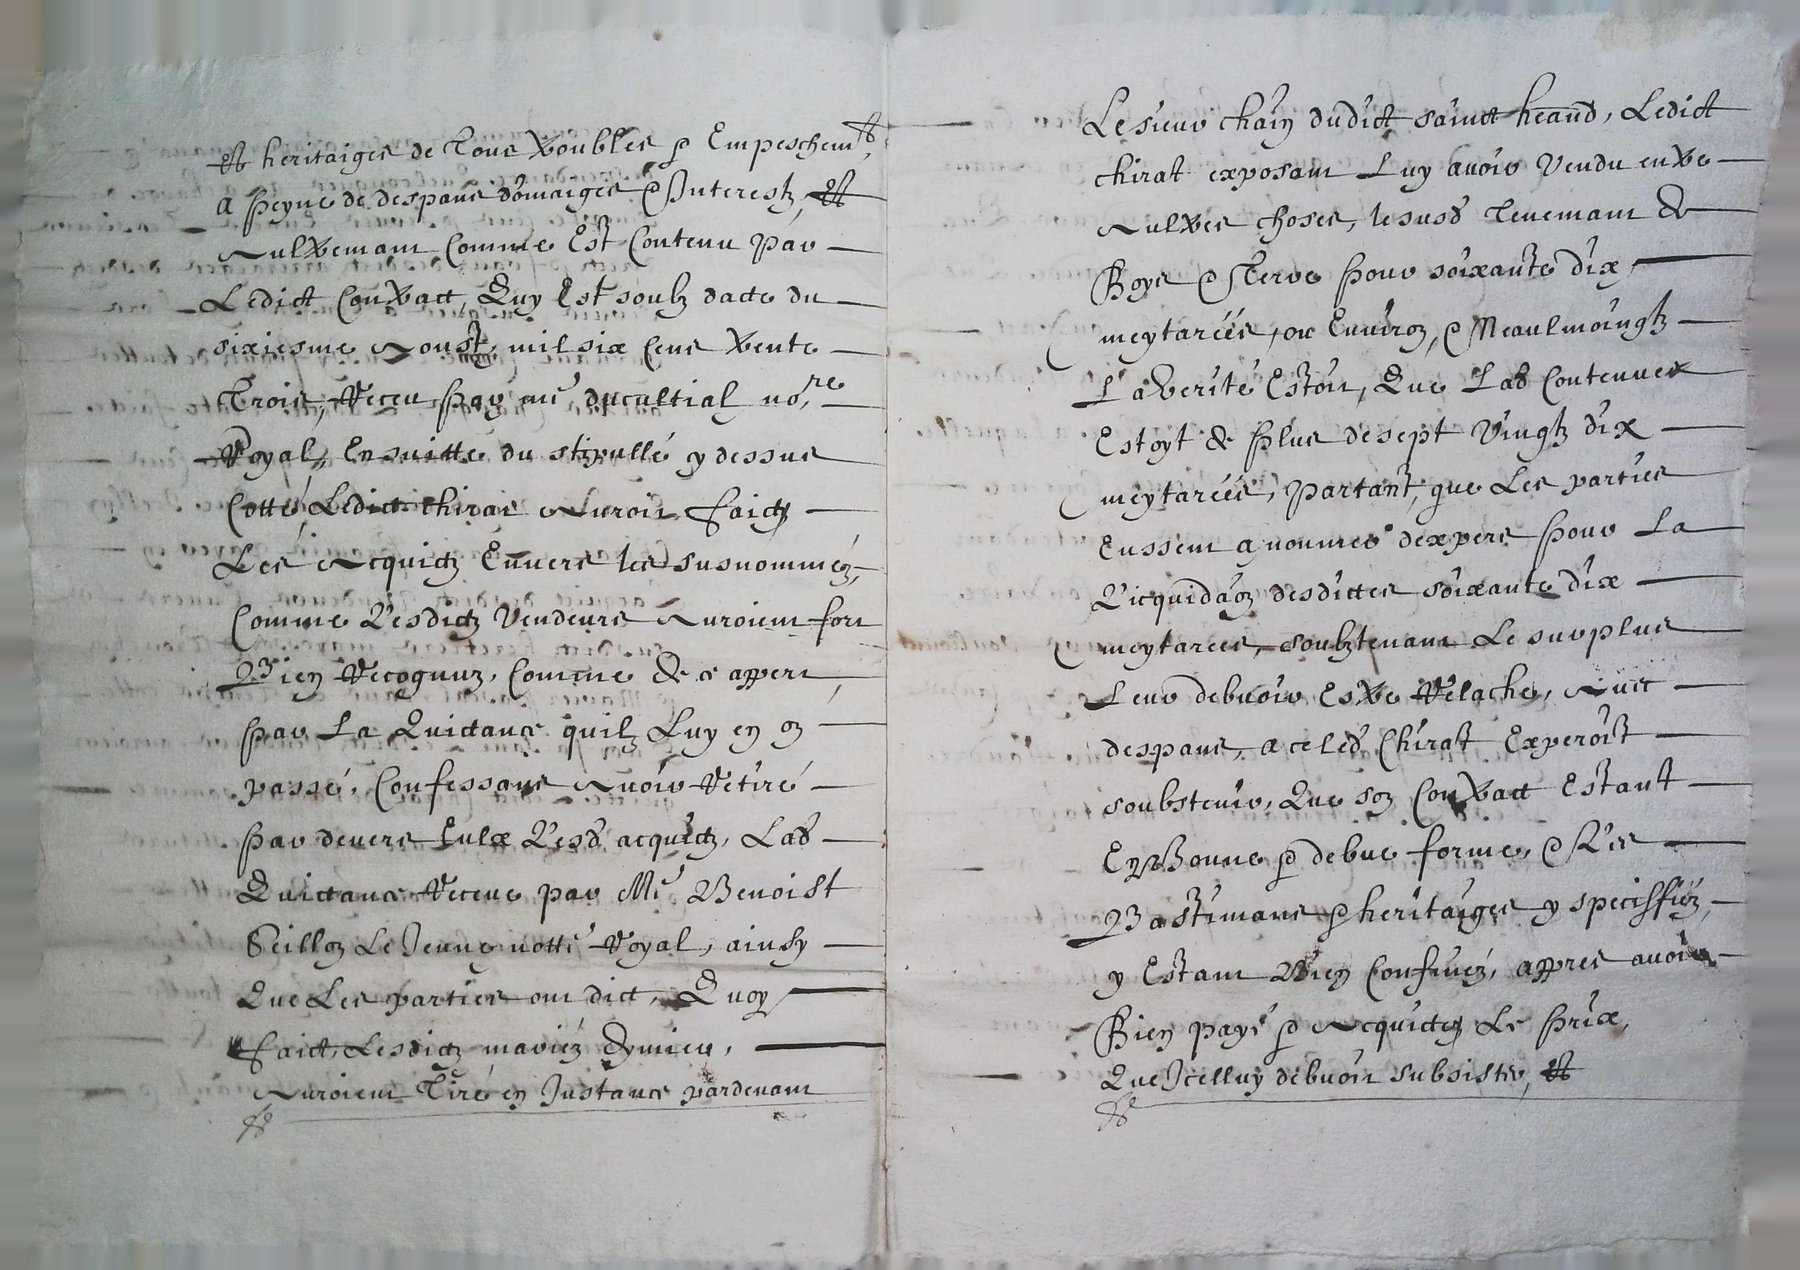 et heritaiges de Tous troubles & Empeschemts
a peyne de despans domaiges & Interestz, et
Aultremant comme Est Contenu par
Ledict Contract, Quy Est soubz datte du
sixiesme Aoust, mil six Cens trente
Trois, Receu par me ducultial nore
Royal, Ensuitte du stipullé y dessus
Cotté, Ledict Chirat Auroit faictz
Les Acquictz Envers les susnomméz,
Comme Lesdictz Vendeurs Auroient fort
Bien Recognuz, Comme de ce appert
par La Quictance quilz Luy en on
passé, Confessans Avoir Retiré
par devers Eulx Lesd acquictz, Lad
Quictance Receue par Me Benoist
Seillon Le Jeune notte Royal, ainsy
Que Les parties ont dict, Quoy
faict, Lesdictz mariéz Eymieu,
Auroient Tiré en Instance pardevant
Le sieur chain dudict sainct heand, Ledict
chirat exposant Luy avoir Vendu entre
Aultres choses, le susd Tenemant de
Boys & Terre pour soixante dix
meytarées, ou Environ, & Neaulmoingtz
La Verité Estoit, Que Lad Contenue
Estoyt de plus de sept Vingtz dix
meytarées, partant, que Les parties
Eussent a nommer dexpers pour La
Licquidaon desdittes soixante dix
meytarees, soubztenant Le surplus
Leur debvoir Estre Relaché, Avec
despans, a ce led Chirat Experoist
soubstenir, Que son Contract Estant
En Bonne & debue forme, & Les
Bastimans & heritaiges y speciffiéz,
y Estant Bien Confinéz, appres avoir
Bien payé & Acquicté Le prix,
Que Icelluy debvoit subsister, et